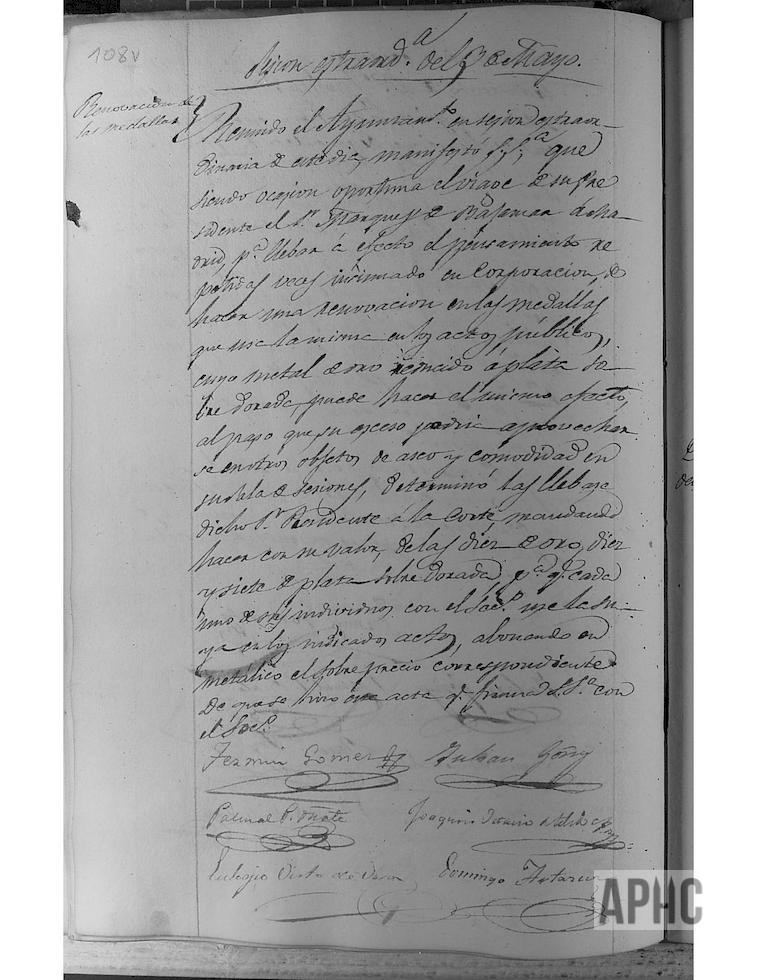 108v
Sesion estraord.ª del 3 de Mayo.
Renovacion de
las medallas
Reunido el Ayuntam.to en sesion estraor-
dinaria de este dia, manifestó S.S.ª que
siendo ocasion oportuna el viage de su Pre
sidente el S.r Marques de a Ma-
drid, p.ª llebar á efecto el pensamiento re
petidas veces insinuado en Corporacion, de
hacer una renovacion en las medallas
que usa la misma en los actos públicos,
cuyo metal de oro reducido á plata so-
bre dorada puede hacer el mismo efecto,
al paso que su esceso podria aprovechar
se en otros objetos de aseo y comodidad en
su sala de sesiones, determinó las llebase
dicho S.r Presidente á la Corte, mandando
hacer con su valor, de las diez de oro, diez
y siete de plata sobre dorada, p.ª q.e cada
uno de sus individuos con el Sec.º use la su-
ya en los indicados actos, abonando en
metálico el sobre precio correspondiente.
De que se hizo este acta q.e firma S.S.ª con
el Sec.º
Fermin Gomez Julian Goñy
Pascual P. Oñate Joaquin
Eulogio de Vera Domingo
APHC